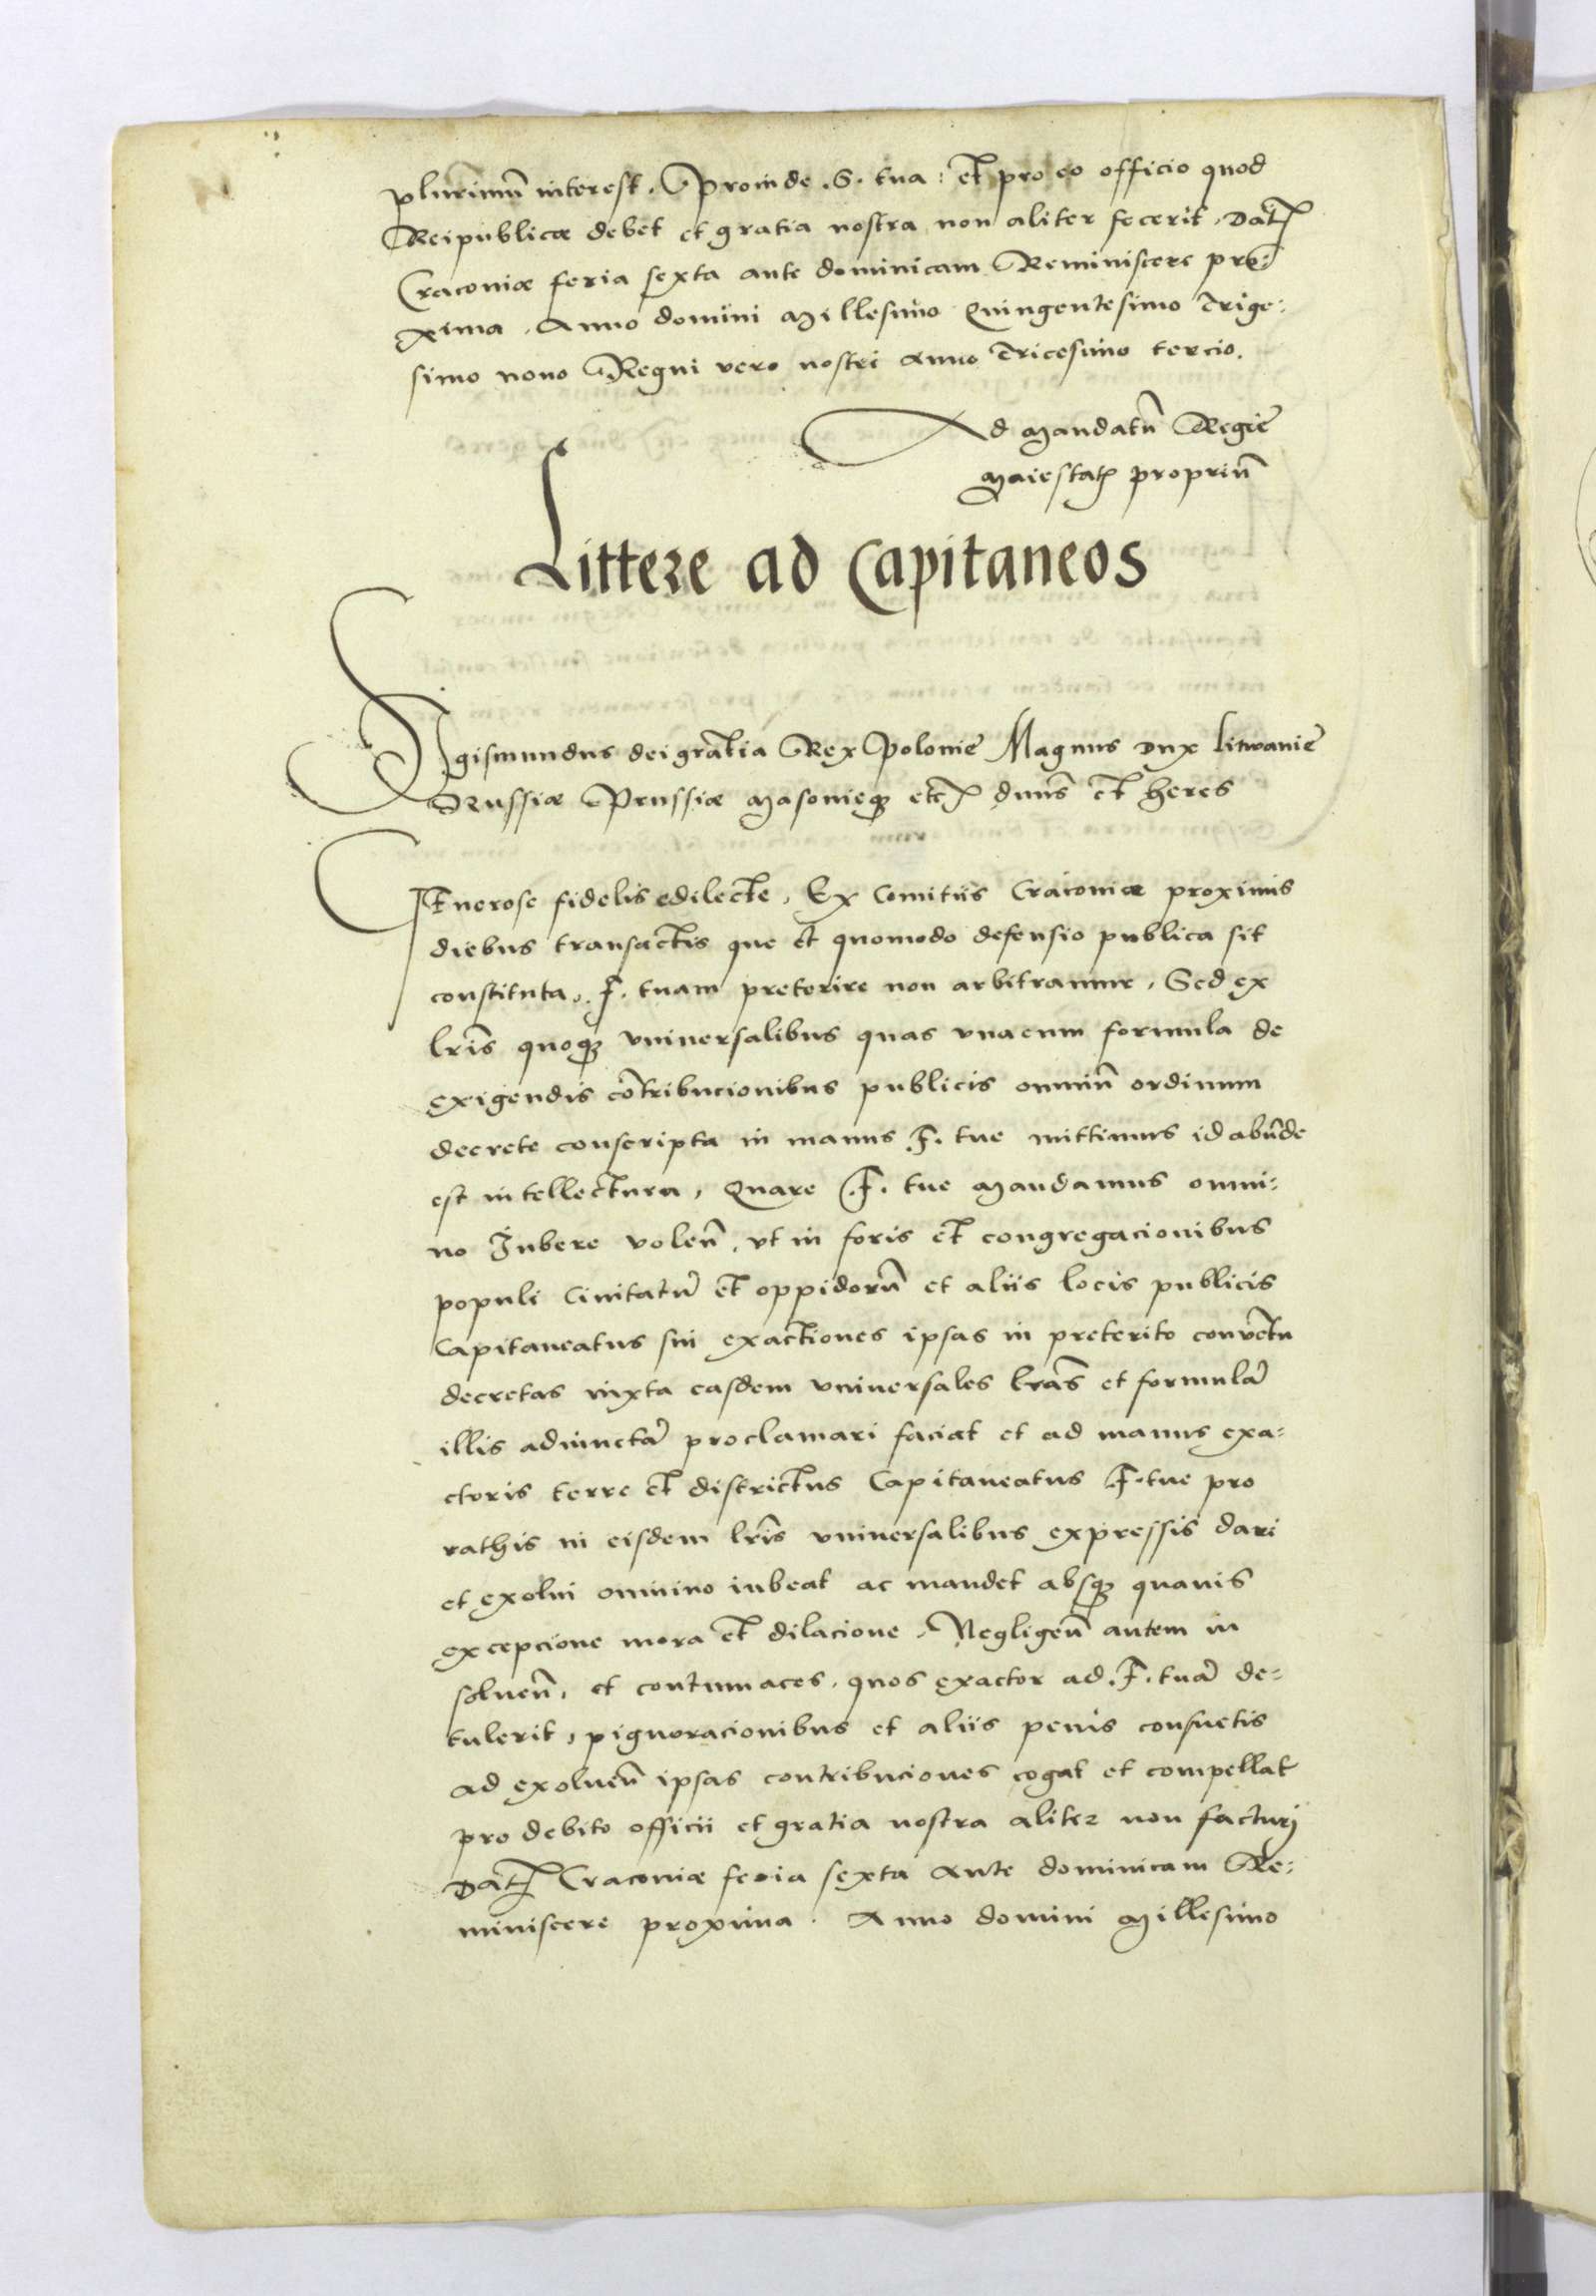 plurimū interest. Proinde .S. tua: et pro eo officio quod
Reipublicæ debet et gratia nostra non aliter fecerit. Dat̄
Cracoviæ feria sexta ante dominicam Reminiscere pro:
xima. Anno domini Millesimo Quingentesimo Trige:
simo nono Regni vero nostri Anno Tricesimo tercio.
Ad Mandatū Regie
Maiestat̄ propriū
Littere ad Capitaneos
Sigismundus dei gratia Rex Polonie Magnus Dux Litwanie
Russiæ Prussiæ Masovieq₃ etc̄ dnus̄ et heres
Generose fidelis dilecte. Ex Comitiis Cracoviæ proximis
diebus transactis que et quomodo defensio publica sit
constituta .F. tuam preterire non arbitramur. Sed ex
lr̄is quoq₃ vniuersalibus quas vnacum formula de
exigendis cōtribucionibus publicis omniū ordinum
decreto conscripta in manus F. tue mittimus id abūde
est intellectura. Quare .F. tue Mandamus omni:
no Iubere volen̄. vt in foris et congregacionibus
populi Ciuitatū et oppidorū et aliis locis publicis
Capitaneatus sui exactiones ipsas in preterito convētu
decretas iuxta easdem vniuersales lr̄as et formulā
illis adiunctā proclamari faciat et ad manus exa:
ctoris terre et districtus Capitaneatus F. tue pro
rathis in eisdem lr̄is vniuersalibus expressis dari
et exolui omnino iubeat ac mandet absq₃ quauis
excepcione mora et dilacione. Negligen̄ autem in
soluen̄. et contumaces. quos exactor ad .F. tuā de:
tulerit, pignoracionibus et aliis penis consuetis
ad exoluen̄ ipsas contribuciones cogat et compellat
pro debito officii et gratia nostra aliter non facturi
Dat̄ Cracoviæ feria sexta Ante dominicam Re:
miniscere proxima. Anno domini Millesimo